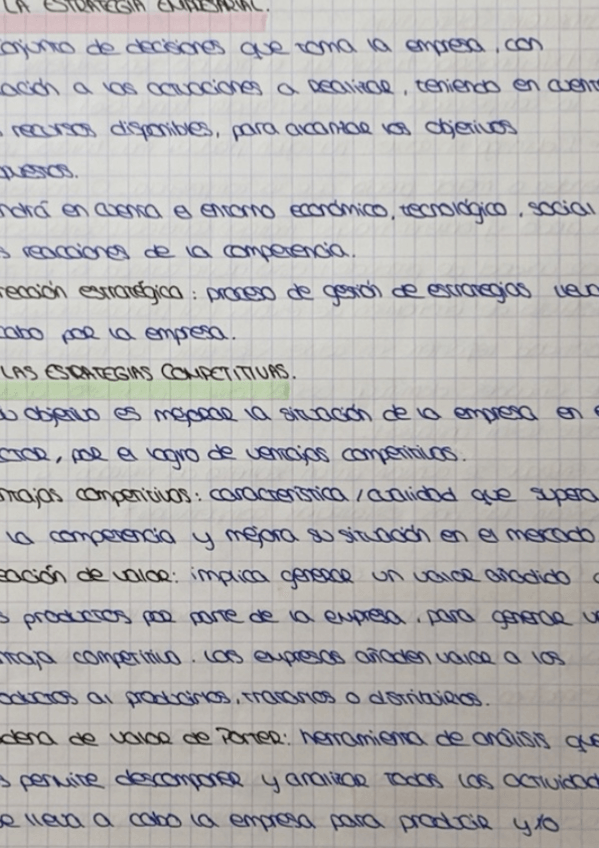 LA ESTRATEGIA EMPRESARIAL.
onjunto de decisiones que toma la empresa, con
ación a las actuaciones a realizar, teniendo en cuent
s recursos disponibles, para alcanzar los objetivos
puestos.
ndrá en cuenta el entorno económico, tecnológico, social
s reacciones de la competencia.
rección estratégica: proceso de gestión de estrategias llev
cabo por la empresa.
LAS ESTRATEGIAS COMPETITIVAS.
u objetivo es mejorar la situación de la empresa en
ctor, por el logro de ventajas competitivas.
ntajas competitivas: característica/cualidad que supera
la competencia y mejora su situación en el mercado
eación de valor: implica generar un valor añadido
s productos por parte de la empresa, para generar u
ntaja competitiva. Las empresas añaden valor a los
oductos al producirlos, tratarlos o distribuirlos.
dena de valor de Porter: herramienta de análisis que
s permite descomponer y analizar todas las actividad
e lleva a cabo la empresa para producir y/o